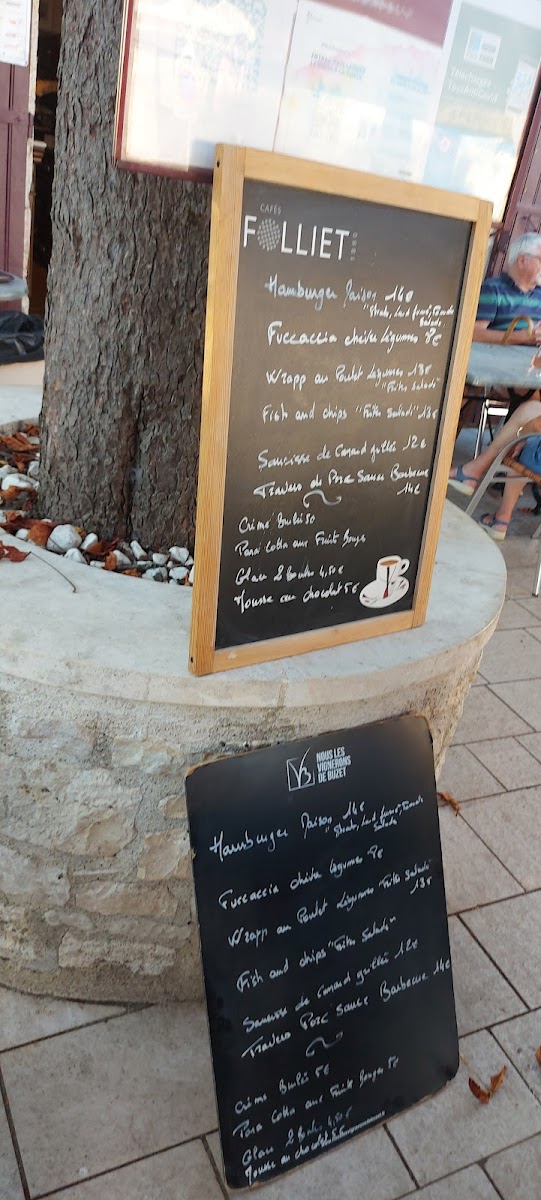 Télécharger
CAFÉS
FOLLIET
1880
Hamburger Maison 14€
"Steak, Lard fumé, Tomate
Salade
Fuccaccia chèvre Légumes 8€
Wrapp au Poulet Légumes 13€
"Frites Salade"
Fish and chips "Frites Salade" 13€
Saucisse de Canard grillée 12€
Travers de Porc Sauce Barbecue
14€
Crème Brulé 5€
Pana Cotta aux Fruits Rouges
Glace 2 boules 4,50€
Mousse au chocolat 5€
NOUS LES
VIGNERONS
DE BUZET
Hamburger Maison 14€
"Steak, Lard fumé, Tomate
Salade
Fuccaccia chèvre Légumes 8€
Wrapp au Poulet Légumes "Frites Salade"
13€
Fish and chips "Frites Salade"
Saucisse de Canard grillée 12€
Travers Porc Sauce Barbecue 14€
Crème Brulé 5€
Pana Cotta aux Fruits Rouges 5€
Glace 2 boules 4,50€
Mousse au chocolat 5€